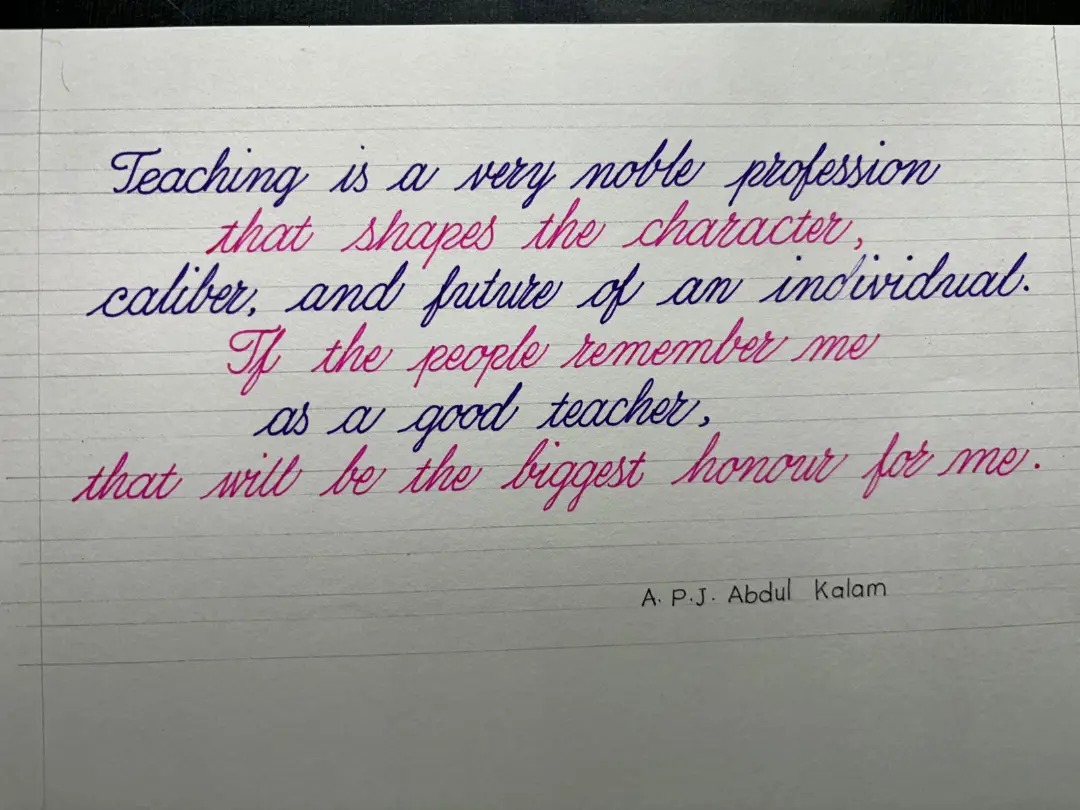 Teaching is a very noble profession
that shapes the character,
caliber, and future of an individual.
If the people remember me
as a good teacher,
that will be the biggest honour for me.
A. P. J. Abdul Kalam